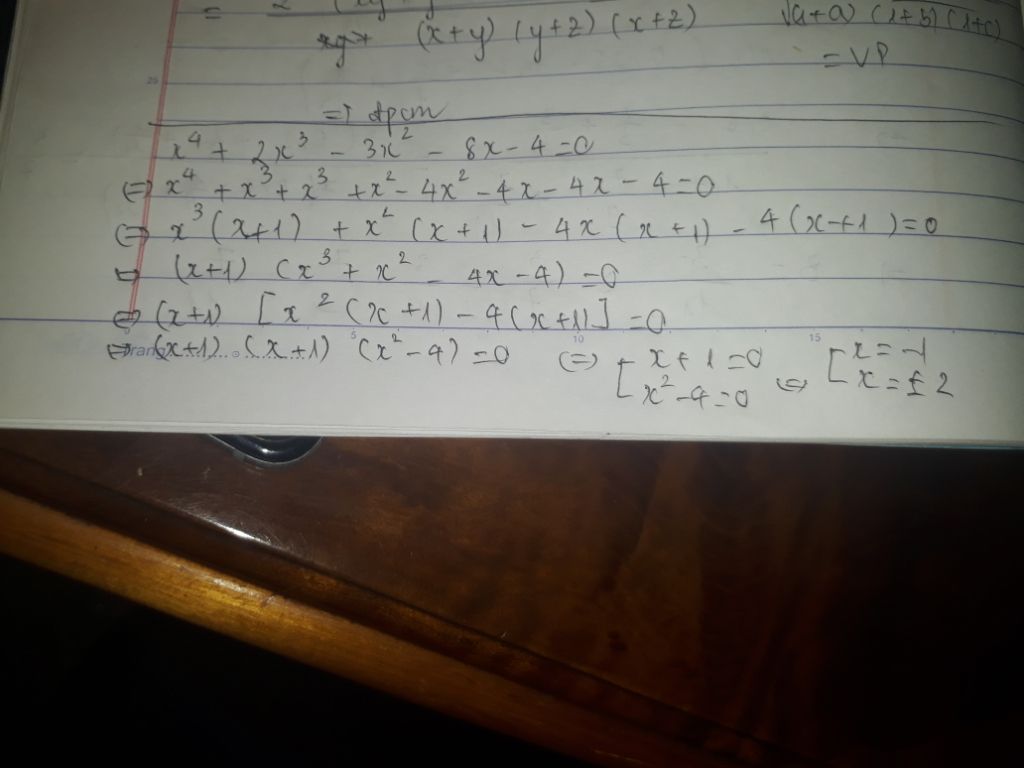 (x+y) (y+z) (x+z) √(1+a) (1+b) (1+c)
= VP
25
=> đpcm
x⁴ + 2x³ - 3x² - 8x - 4 = 0
<=> x⁴ + x³ + x³ + x² - 4x² - 4x - 4x - 4 = 0
<=> x³ (x+1) + x² (x+1) - 4x (x+1) - 4 (x+1) = 0
<=> (x+1) (x³ + x² - 4x - 4) = 0
<=> (x+1) [x² (x+1) - 4(x+1)] = 0
5 10 15
<=> (x+1) (x+1) (x² - 4) = 0 <=> [ x + 1 = 0 <=> [ x = -1
x² - 4 = 0 x = ± 2